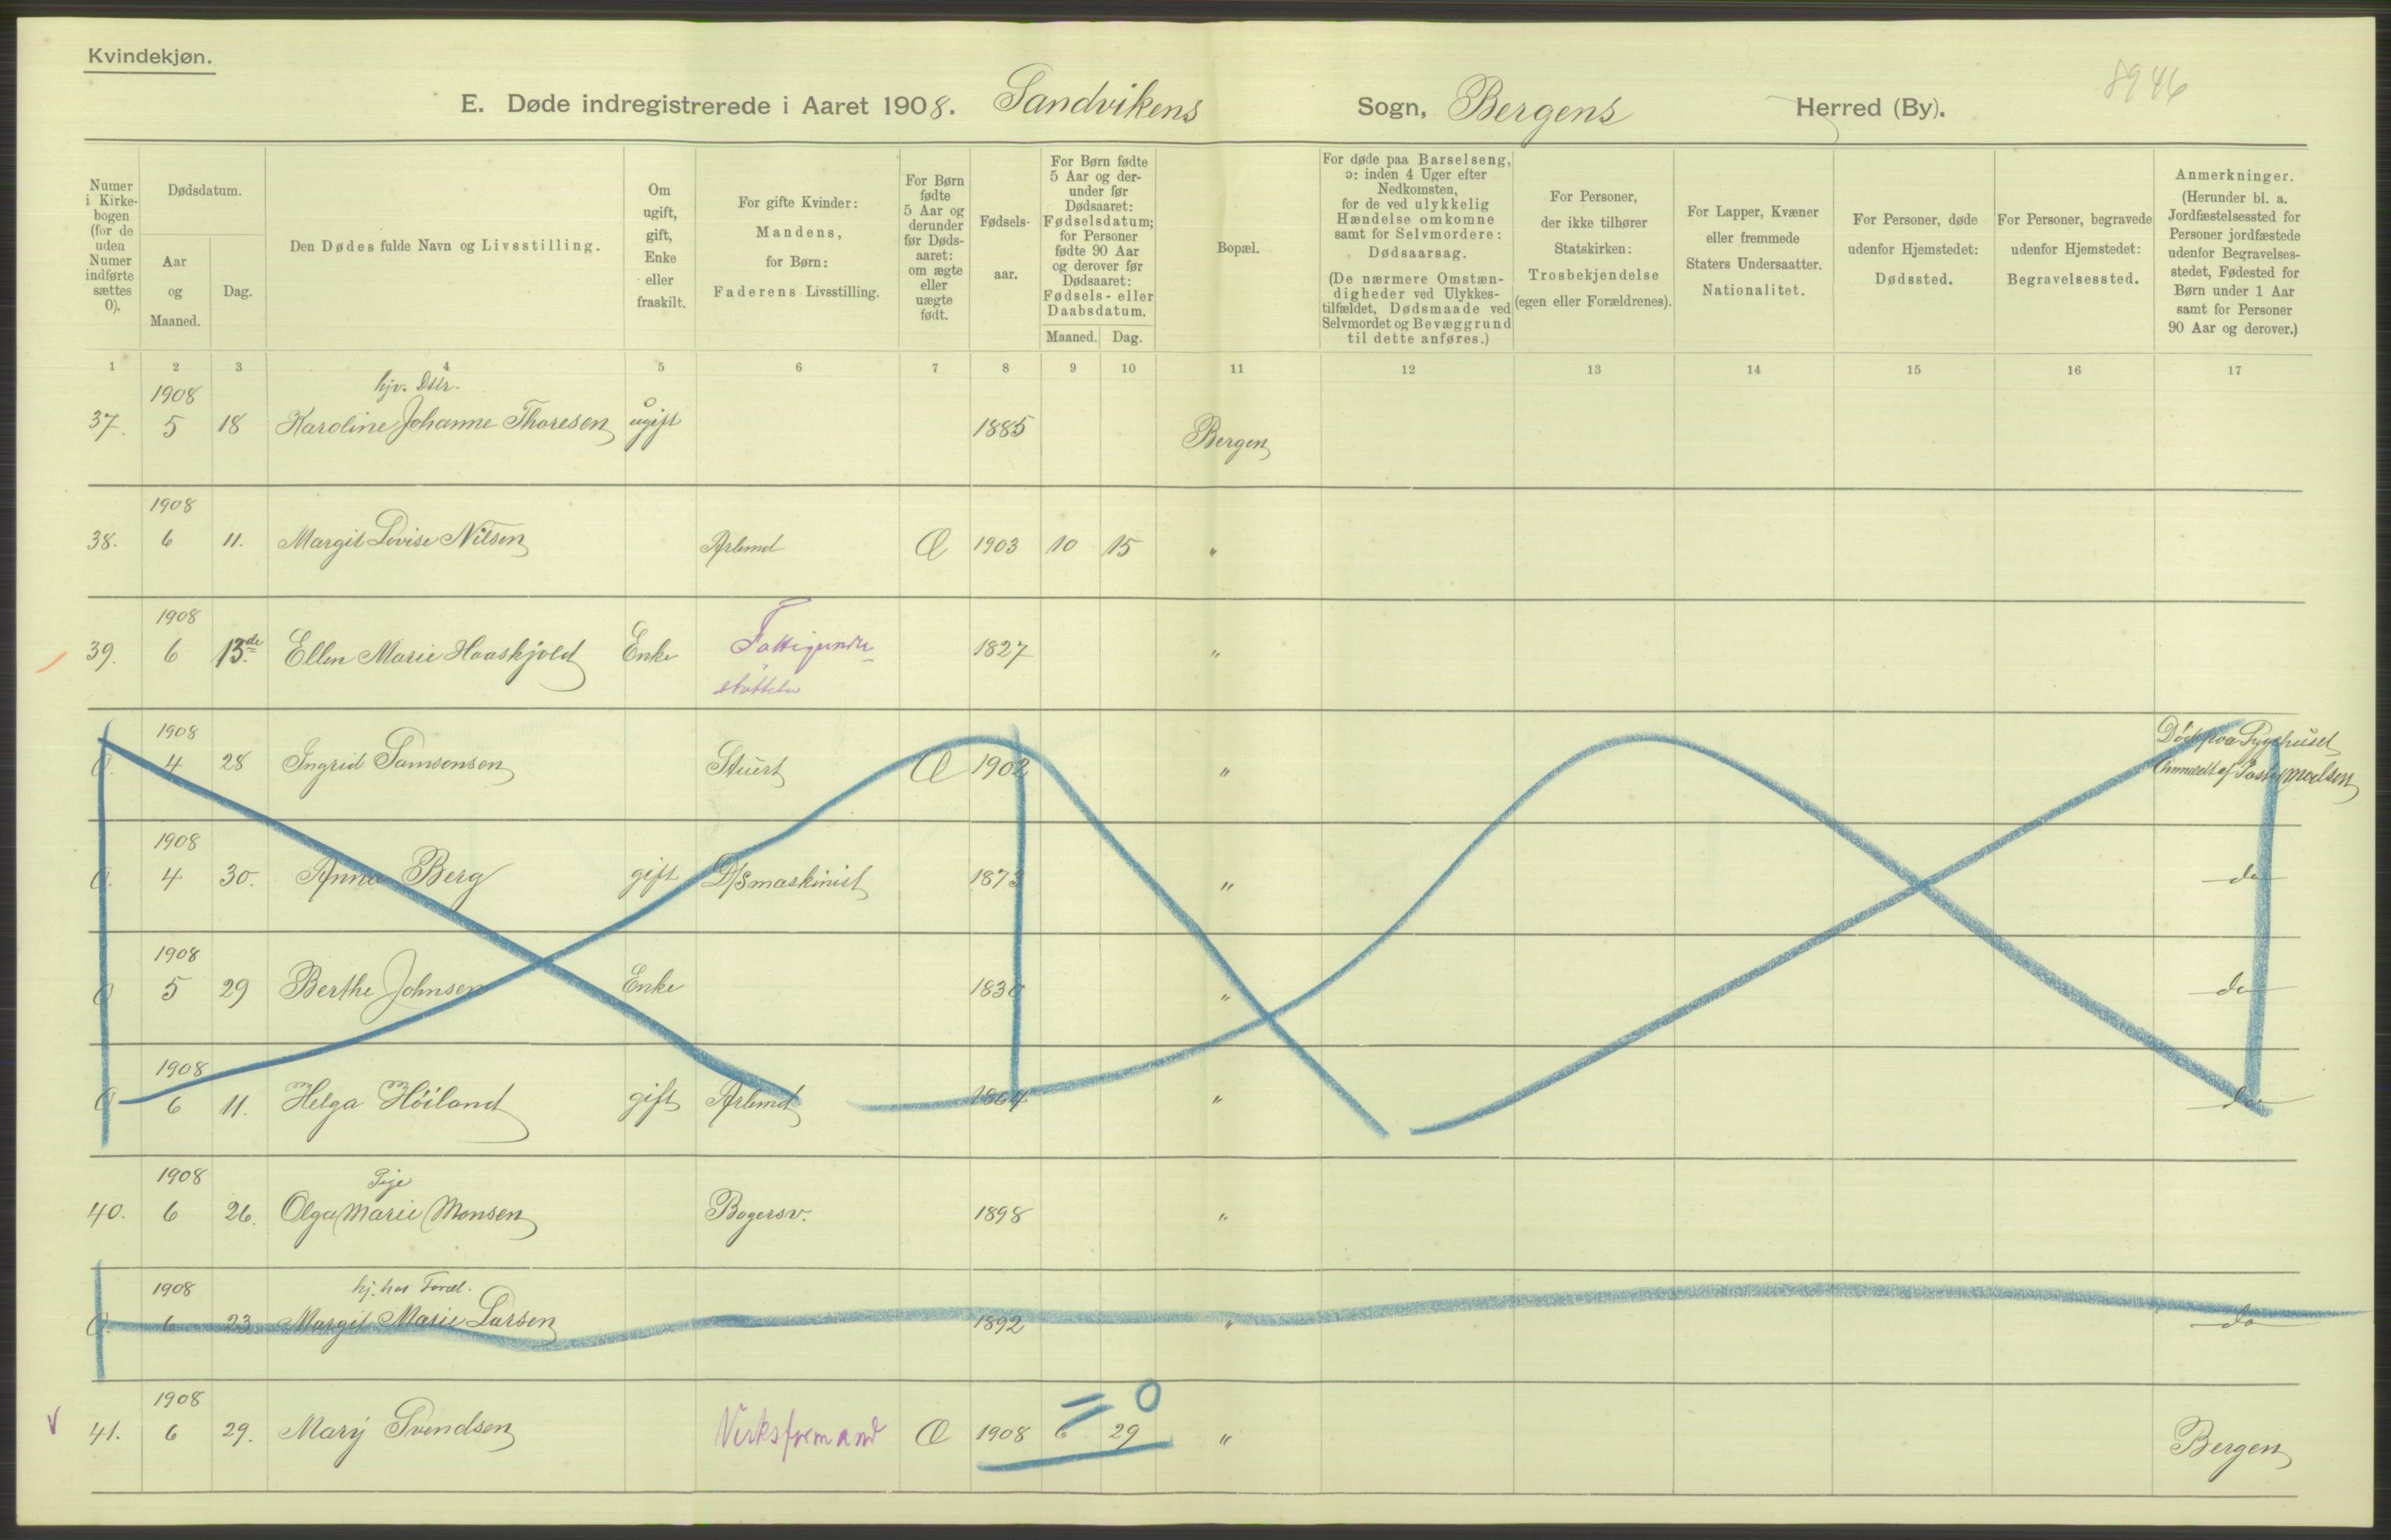 Kvindekjøn.
8946
E. Døde indregistrerede i Aaret 1908. Sandvikens Sogn, Bergens Herred (By).
Numer i Kirkebogen (for de uden Numer indførte sættes 0).
Dødsdatum.
Aar og Maaned.
Dag.
Den Dødes fulde Navn og Livsstilling.
Om ugift, gift, Enke eller fraskilt.
For gifte Kvinder: Mandens, for Børn: Faderens Livsstilling.
For Børn fødte 5 Aar og derunder før Dødsaaret: om ægte eller uægte født.
Fødselsaar.
For Børn fødte 5 Aar og derunder før Dødsaaret: Fødselsdatum; for Personer fødte 90 Aar og derover før Dødsaaret: Fødsels- eller Daabsdatum.
Maaned. Dag.
Bopæl.
For døde paa Barselseng, ɔ: inden 4 Uger efter Nedkomsten, for de ved ulykkelig Hændelse omkomne samt for Selvmordere: Dødsaarsag. (De nærmere Omstændigheder ved Ulykkestilfældet, Dødsmaade ved Selvmordet og Bevæggrund til dette anføres.)
For Personer, der ikke tilhører Statskirken: Trosbekjendelse (egen eller Forældrenes).
For Lapper, Kvæner eller fremmede Staters Undersaatter. Nationalitet.
For Personer, døde udenfor Hjemstedet: Dødssted.
For Personer, begravede udenfor Hjemstedet: Begravelsessted.
Anmerkninger. (Herunder bl. a. Jordfæstelsessted for Personer jordfæstede udenfor Begravelsesstedet, Fødested for Børn under 1 Aar samt for Personer 90 Aar og derover.)
1 2 3 4 5 6 7 8 9 10 11 12 13 14 15 16 17
1908 hjv. Dttr.
37. 5 18 Karoline Johanne Thoresen ugift 1885 Bergen
1908
38. 6 11. Margit Lovise Nilsen Arbmd Æ 1903 10 15 "
1908
39. 6 13de Ellen Marie Haaskjold Enke Fattigunder 1827 "
støttelse
1908 Død paa Sygehuset
0. 4 28 Ingrid Samsonsen Stuert Æ 1902 " Anmeldt af Pastor
1908
0. 4 30. Anna Berg gift D/Smaskinist 1873 " do
1908
0 5 29 Berthe Johnsen Enke 1830 " do
1908
0 6 11. Helga Höiland gift Arbmd 1864 " do
1908 Pige
40. 6 26. Olga Marie Monsen Bagersv. 1898 "
1908 hj. hos Foræl.
0. 6 23. Margit Marie Larsen 1892 " do
1908 = 0
V 41. 6 29. Mary Svendsen Verksformand Æ 1908 6 29 " Bergen